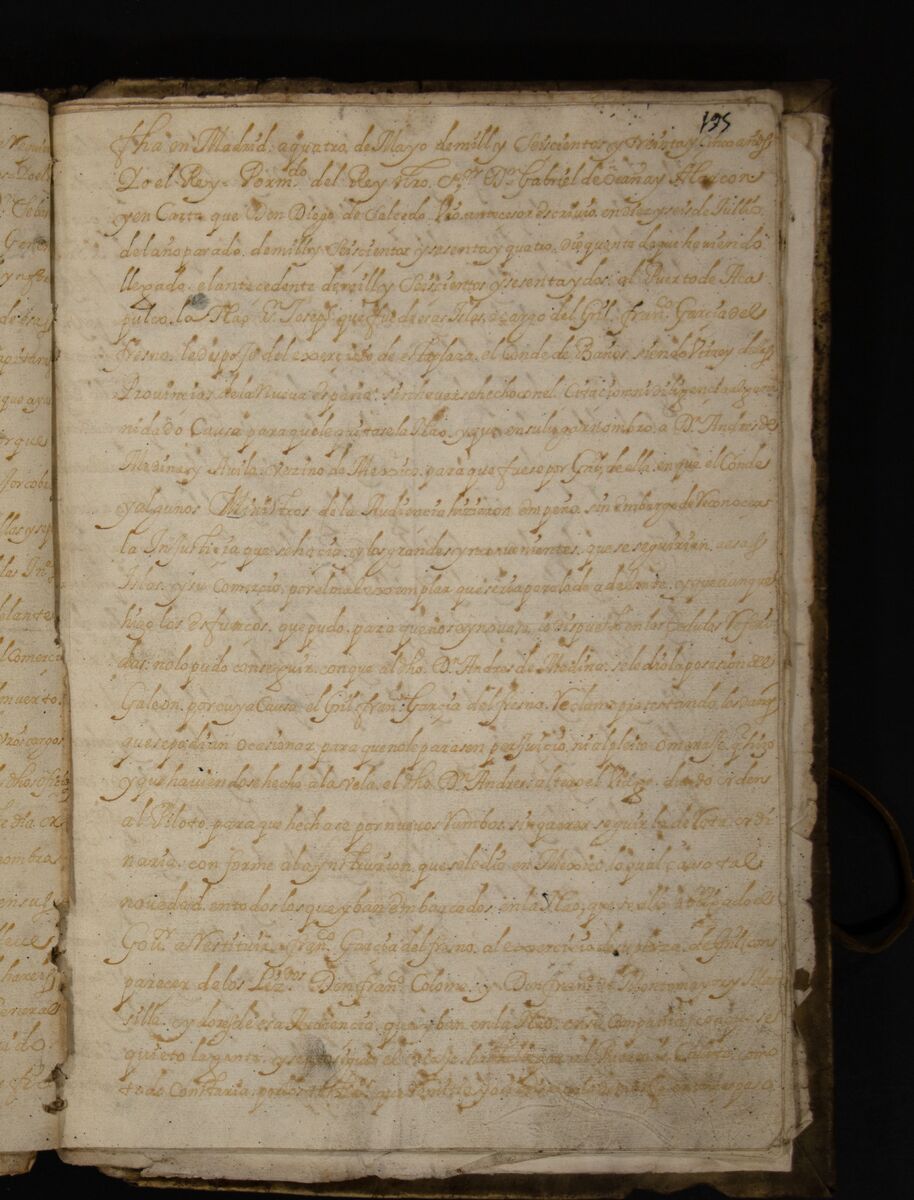 195
fha en Madrid. a quatro. de Mayo de mill y Seiscientos y treinta y Cinco años
Yo el Rey. Por mdo. del Rey nro. Sr. Dn. Gabriel de Ocaña y Alarcon
y en Carta que Don Diego. de Salcedo. Vro. antecesor escriuio. en Diez y seis de Jullio
del año pasado. de mill y Seiscientos y sesenta y quatro. Dio quenta de que hauiendo
llegado. el antecedente de mill y Seiscientos y sesenta y dos. al Puerto de Aca
pulco. la Nao. Sn. Joseph. que fue de esas Islas. a cargo del Gl. Franco. Garcia del
fresno. le despojo del exercicio de esta plaza. el Conde de Baños. siendo Virrey de las
Prouincias. de la Nueua españa. sin hauerse hecho con el. Citacion ni diligencia
nidado Causa para que le quitase la Nao. y que. en su lugar nombro. a Dn. Andres de
Medina y Auila. Vezino de Mexico. para que fuese por Gl. de ella. en que el Conde
y algunos Ministros de la Audiencia hizieron empeño. sin embargo de Reconocer
la Injusticia que se hacia. y los grandes ynconuenientes. que se seguirian. a esas
Islas. y su Comercio. por el mal exemplar que seria para lo de adelante. y que aunque
hizo los esfuerços. que pudo. para que no se ynouase. lo dispuesto en las Cedulas Referi
das. no lo pudo conseguir. con que al dho. Dn. Andres de Medina. se le dio la posesion del
Galeon. por cuya Causa. el Gl. Fran. Garcia del fresno. Reclamo protestando. los daños
que se podian ocasionar. para que no le parasen perjuicio, ni al pleito omenaje. q hizo
y que hauiendose hecho. a la Vela. el dho. Dn. Andres. altero el Viage. dando orden
al Piloto. para que hechase por nueuos Rumbos. sin querer seguir la derota ordi
naria. conforme a la ynstruccion. que se le dio en Mexico. lo qual causo tal
nouedad. en todos los que yban embarcados. en la Nao, que se allo obligado el
Gou. a Restituir a fran. Garcia del fresno. al exercicio de su plaza. de Gl. con
parecer de los Lizdos. Don fran. Coloma. y Don fran. de Montemayor y Man
silla. oydores de esa Audiencia. que yban en la Nao. en su Compañia. con que se
quieto la gente.